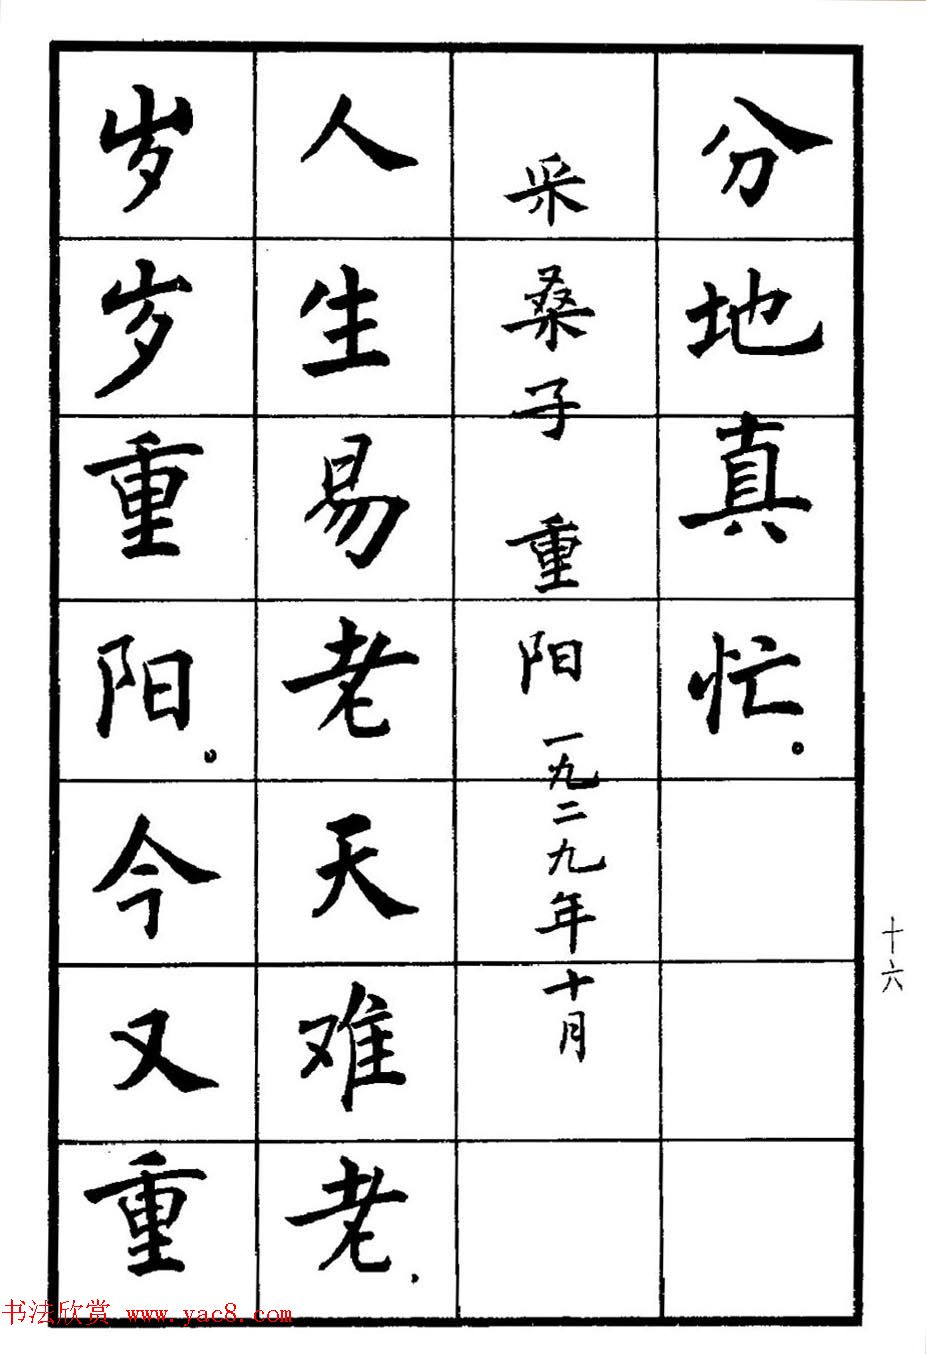 分地真忙。
采桑子 重阳 一九二九年十月
人生易老天难老,
岁岁重阳。今又重
十六
书法欣赏 www.yac8.com